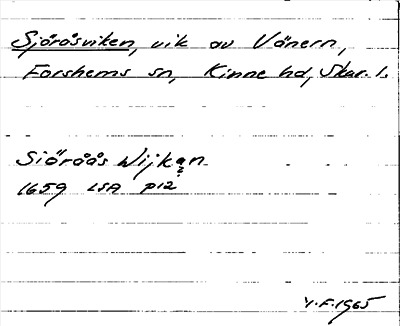 Sjöråsviken, vik av Vänern,
Forshems sn, Kinne hd, Skar. l.
Siöråås Wijkan
1659 LSA P12
Y.F. 1965